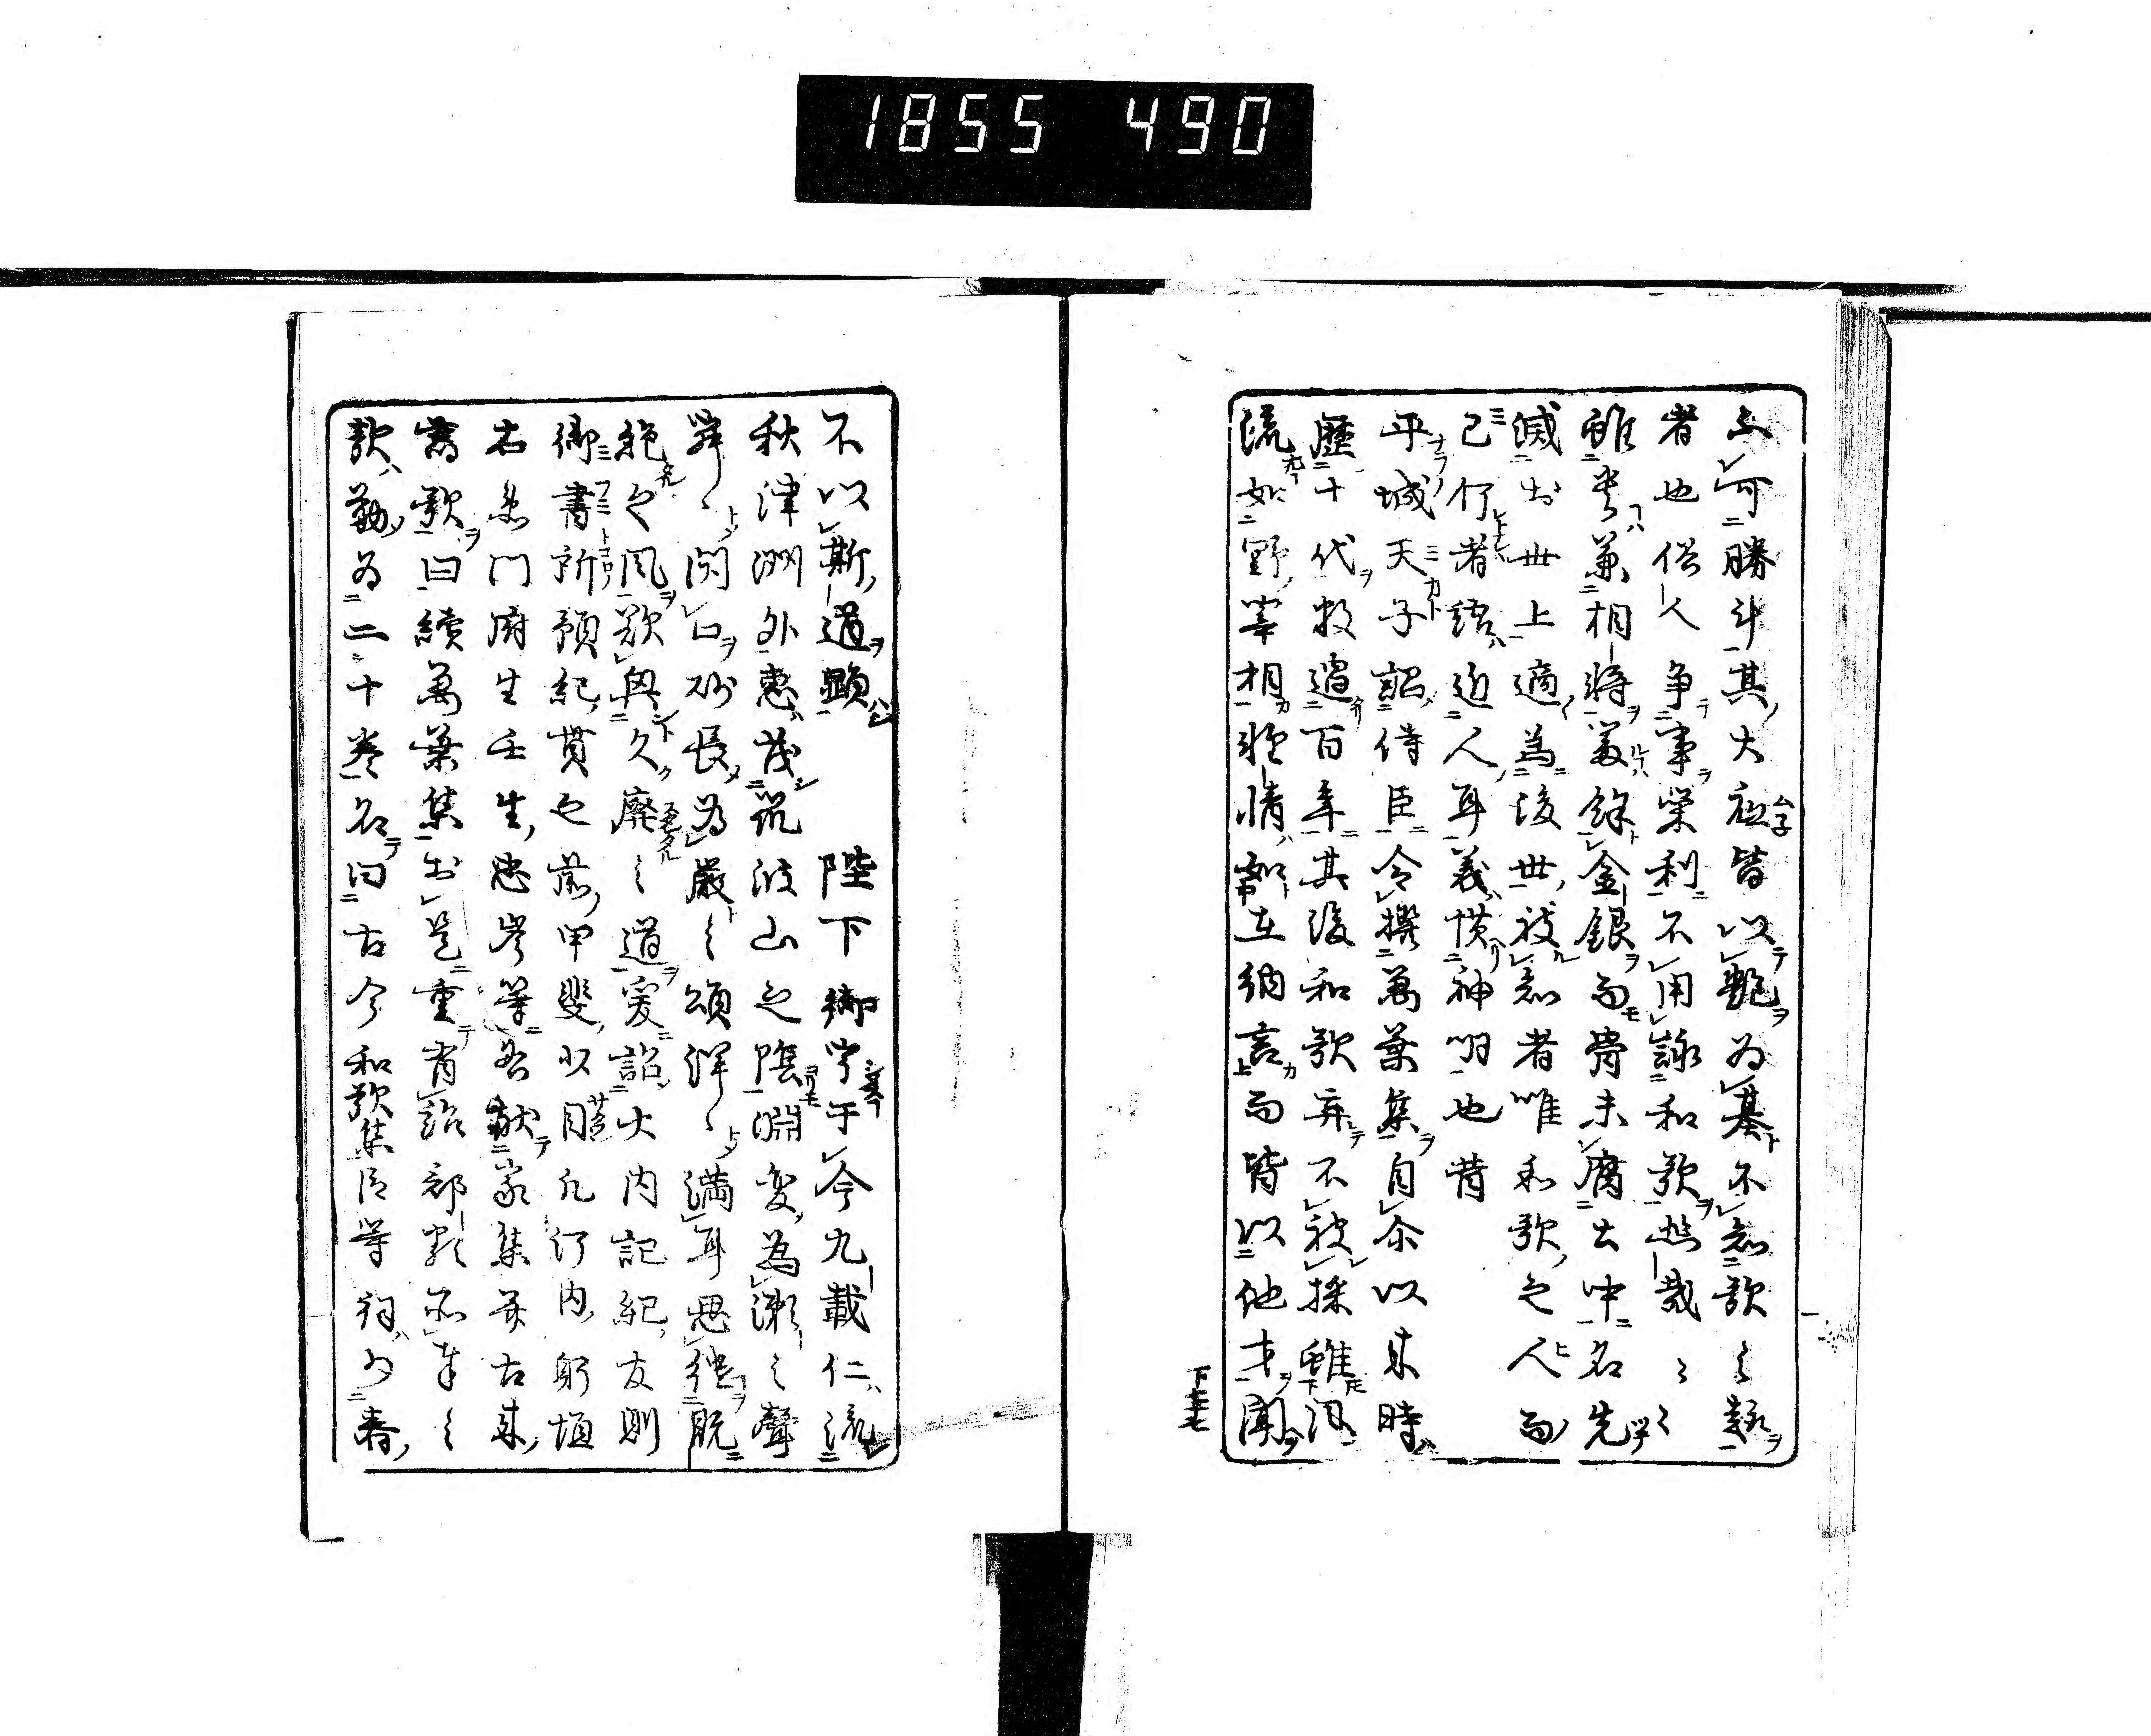 1855 490
不可勝計其大底皆以艶為基不知歌之趣
者也俗人争事栄利不用詠和歌悲哉々々
雖貴兼相将富餘金銀而骨未腐土中名先
滅於世上適為後世被知者唯和歌之人而
已何者語近人耳義慣神明也昔
平城天子詔侍臣令撰萬葉集自尓以来時
歴十代数過百年其後和歌弃不被採雖風
流如野宰相雅情如在納言而皆以他才聞
下主七
不以斯道顕　陛下御宇于今九載仁流
秋津洲外恵茂筑波山之陰淵変為瀬之聲
寂々閇口砂長為巌之頌洋々満耳思継既
絶之風欲興久廃之道爰詔大内記紀友則
御書所預紀貫之前甲斐少目凡河内躬恒
右衛門府生壬生忠岑等各献家集并古来
舊歌曰續萬葉集於是重有詔部類所奉之
歌勒為二十巻名曰古今和歌集臣等詞少春